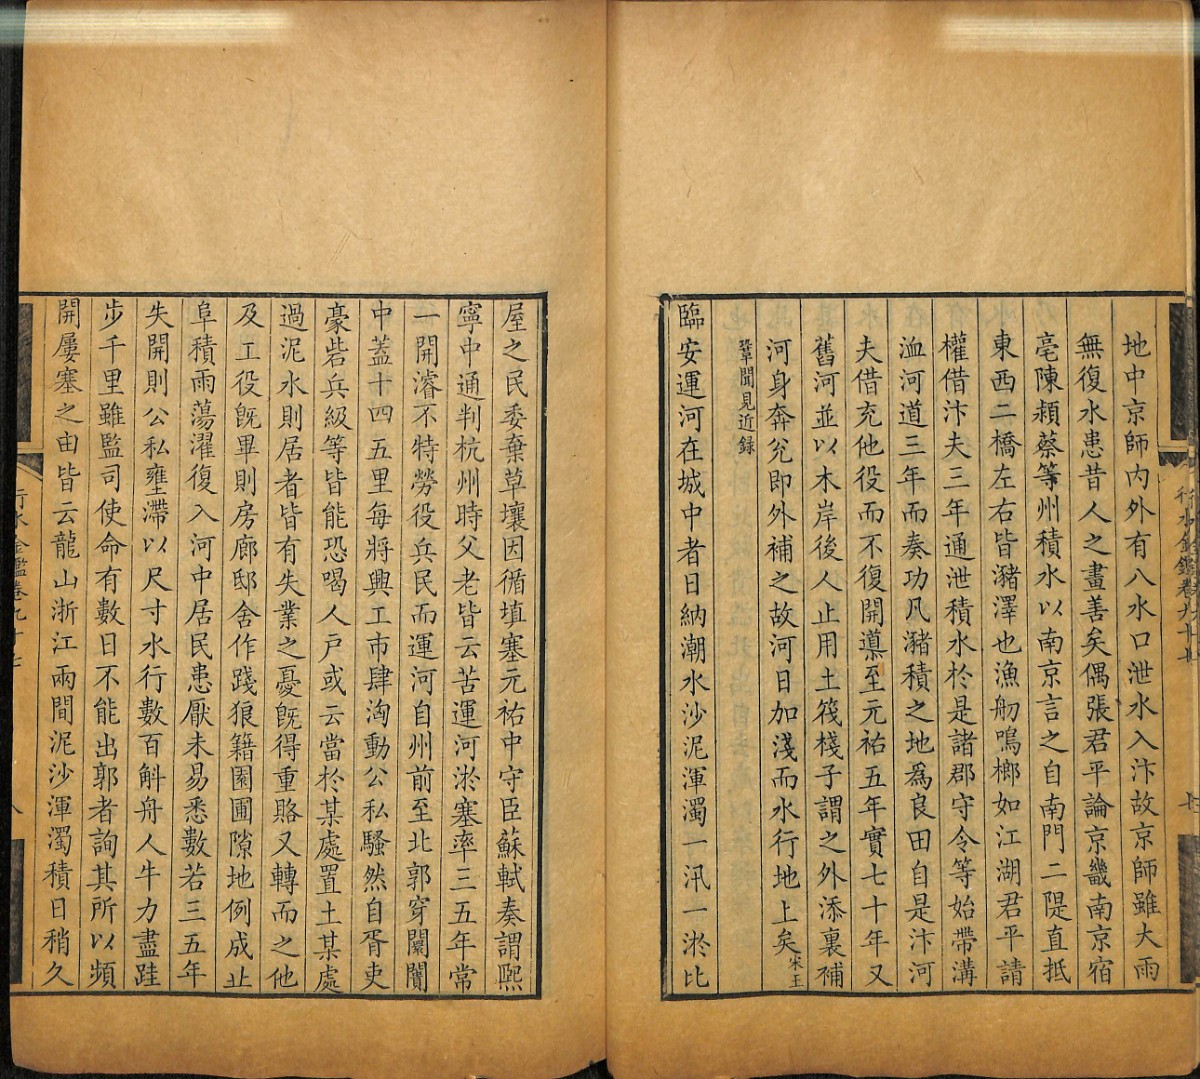 行水金鑑卷九十七
地中京師內外有八水口泄水入汴故京師雖大雨
無復水患昔人之畫善矣偶張君平論京畿南京宿
亳陳潁蔡等州積水以南京言之自南門二隄直抵
東西二橋左右皆豬澤也漁舠鳴榔如江湖君平請
權借汴夫三年通泄積水於是諸郡守令等始帶溝
洫河道三年而奏功凡豬積之地爲良田自是汴河
夫借充他役而不復開導至元祐五年實七十年又
舊河並以木岸後人止用土筏棧子謂之外添裏補
河身奔兊即外補之故河日加淺而水行地上矣宋王
鞏聞見近錄
臨安運河在城中者日納潮水沙泥渾濁一汛一淤比
屋之民委棄草壤因循塡塞元祐中守臣蘇軾奏謂熙
寧中通判杭州時父老皆云苦運河淤塞率三五年常
一開濬不特勞役兵民而運河自州前至北郭穿闤闠
中蓋十四五里每將興工市肆洶動公私騷然自胥吏
豪砦兵級等皆能恐喝人戶或云當於某處置土某處
過泥水則居者皆有失業之憂旣得重賂又轉而之他
及工役旣畢則房廊邸舍作踐狼籍園圃隙地例成丘
阜積雨蕩濯復入河中居民患厭未易悉數若三五年
失開則公私壅滯以尺寸水行數百斛舟人牛力盡跬
步千里雖監司使命有數日不能出郭者詢其所以頻
開屢塞之由皆云龍山浙江兩閘泥沙渾濁積日稍久
行水金鑑卷九十七
八